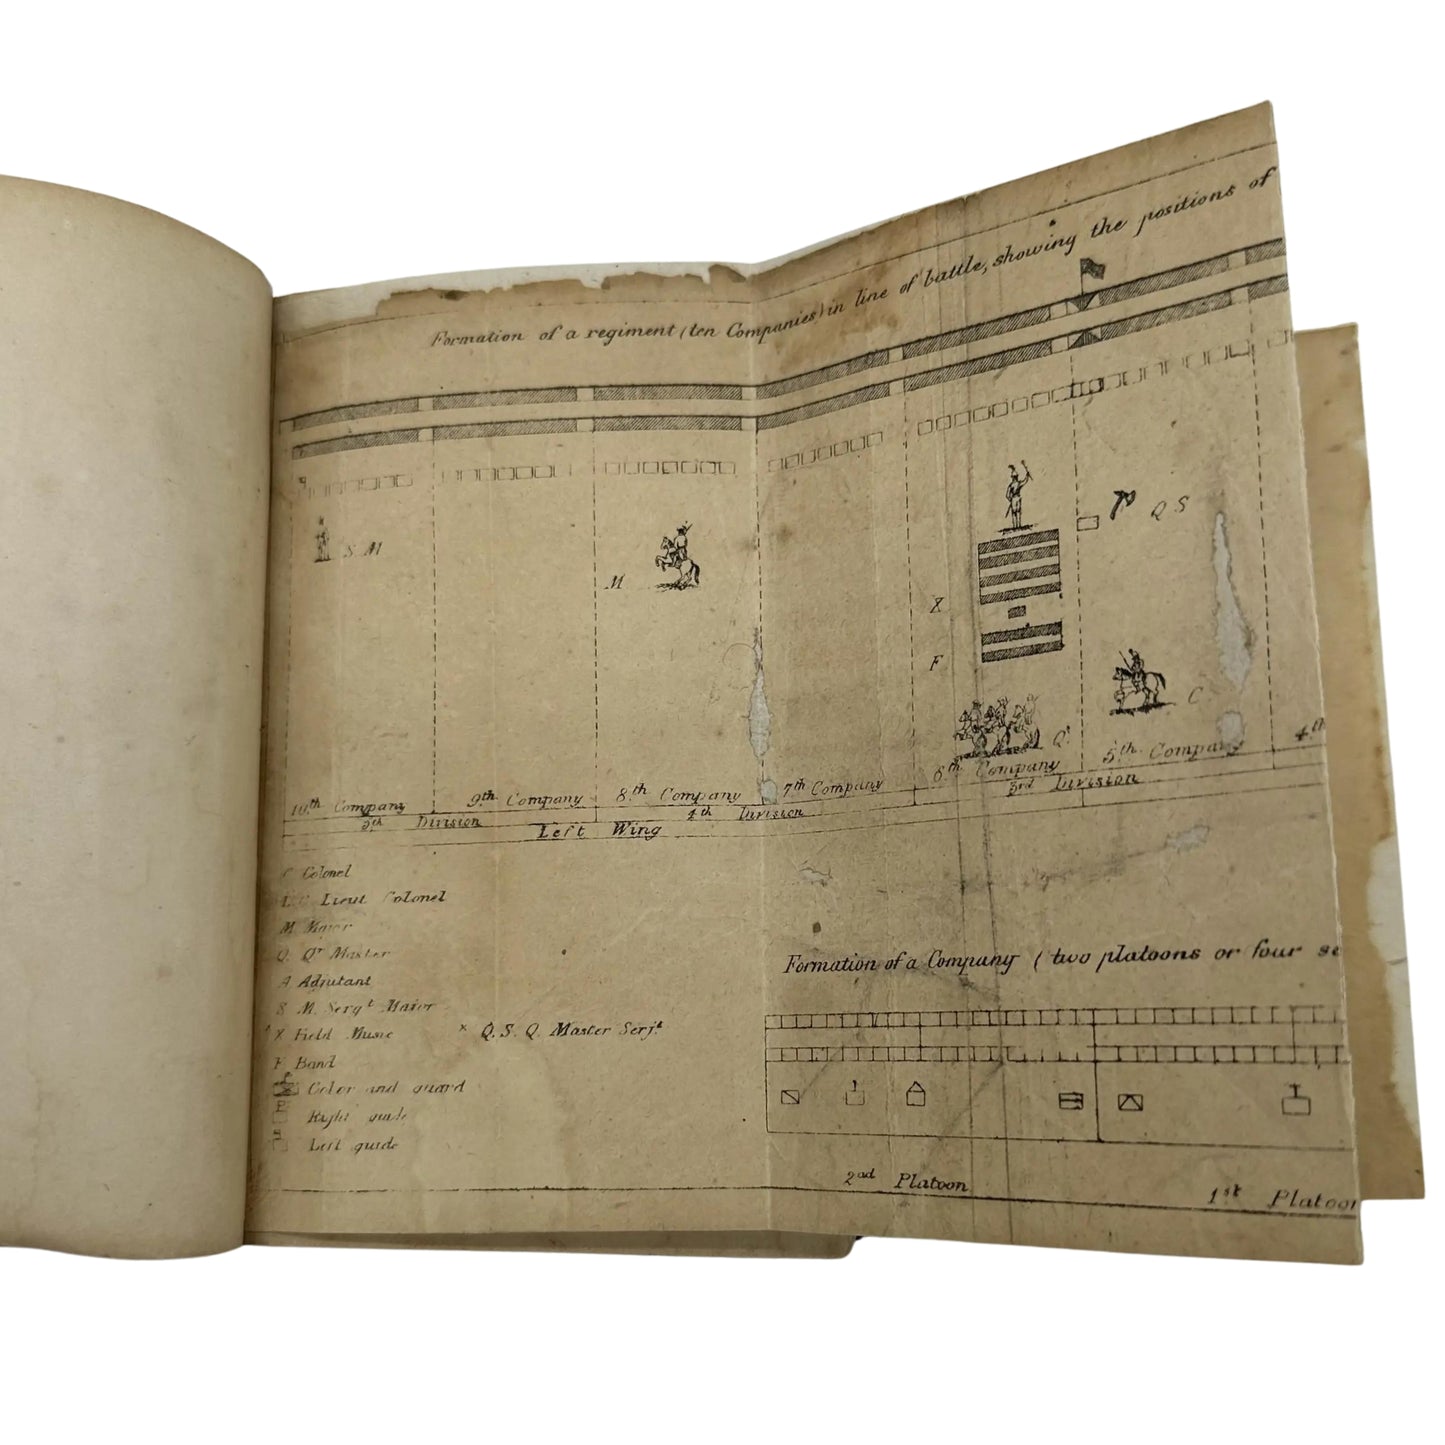 Formation of a regiment (ten Companies) in line of battle, showing the positions of
S M
M
Q S
X
F
C
Q.r
10th Company 9th Company 8th Company 7th Company 6th Company 5th Company 4th
5th Division 4th Division 3rd Division
Left Wing
C Colonel
L.C Lieut Colonel
M Major
Q. Qr Master
A Adjutant
S M. Sergt Major
X Field Music × Q. S. Q. Master Serjt
F Band
Color and guard
Right guide
Left guide
Formation of a Company (two platoons or four se
2nd Platoon 1st Platoon